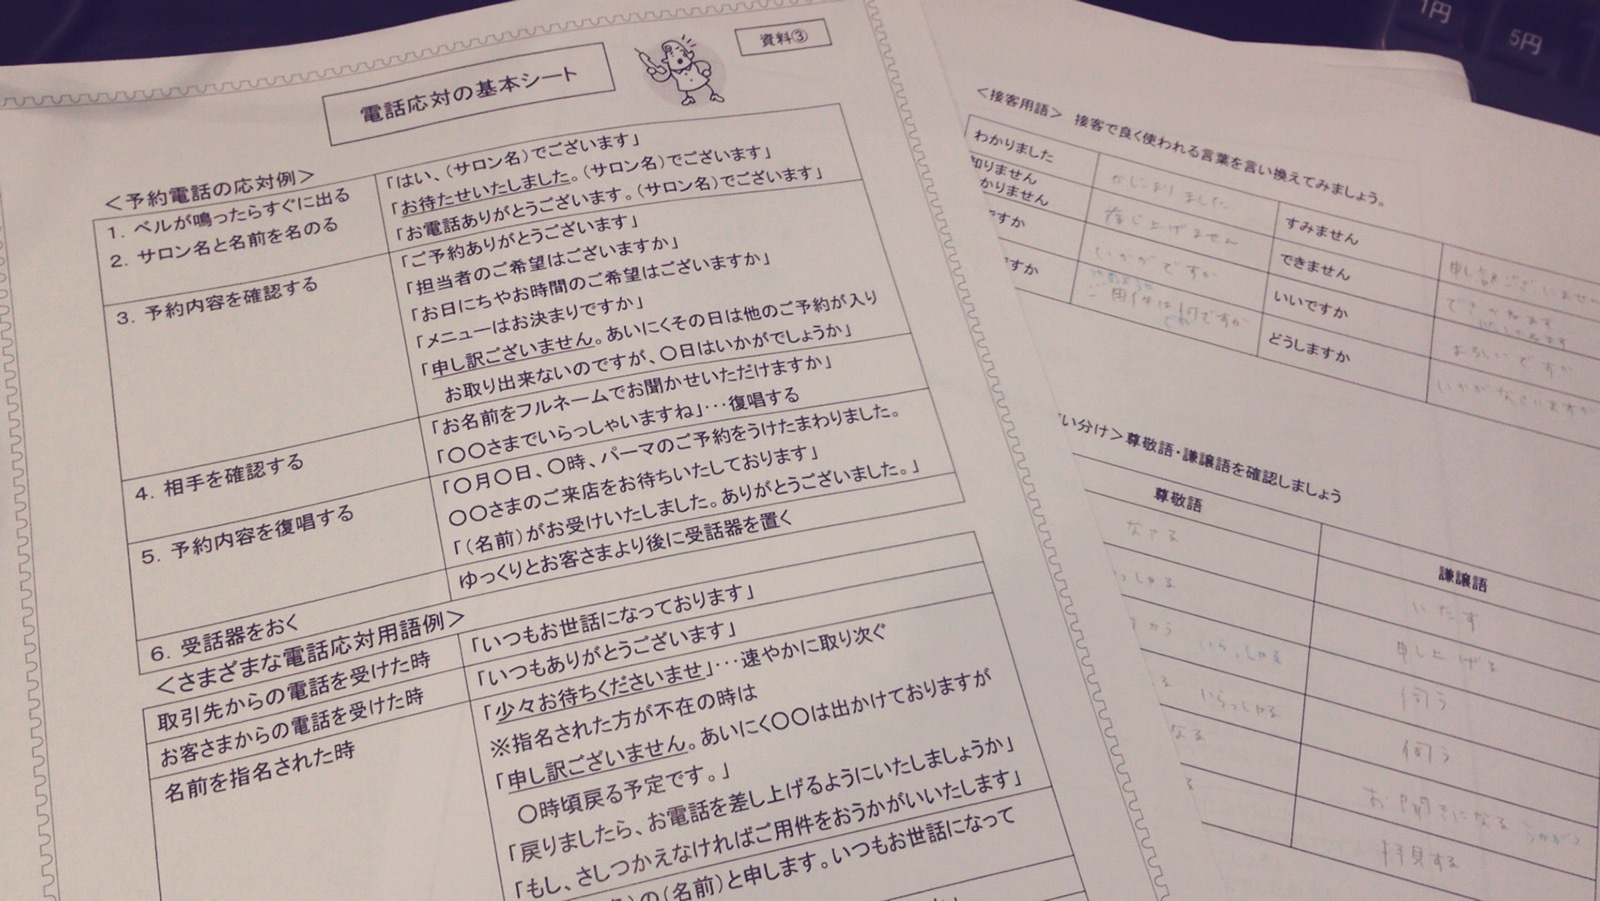 電話応対の基本シート
資料③
＜予約電話の応対例＞
1．ベルが鳴ったらすぐに出る
2．サロン名と名前を名のる
「はい、（サロン名）でございます」
「お待たせいたしました。（サロン名）でございます」
「お電話ありがとうございます。（サロン名）でございます」
3．予約内容を確認する
「ご予約ありがとうございます」
「担当者のご希望はございますか」
「お日にちやお時間のご希望はございますか」
「メニューはお決まりですか」
「申し訳ございません。あいにくその日は他のご予約が入り
お取り出来ないのですが、〇日はいかがでしょうか」
4．相手を確認する
「お名前をフルネームでお聞かせいただけますか」
「〇〇さまでいらっしゃいますね」…復唱する
5．予約内容を復唱する
「〇月〇日、〇時、パーマのご予約をうけたまわりました。
〇〇さまのご来店をお待ちいたしております」
「（名前）がお受けいたしました。ありがとうございました。」
6．受話器をおく
ゆっくりとお客さまより後に受話器を置く
＜さまざまな電話応対用語例＞
取引先からの電話を受けた時
「いつもお世話になっております」
お客さまからの電話を受けた時
「いつもありがとうございます」
名前を指名された時
「少々お待ちくださいませ」…速やかに取り次ぐ
※指名された方が不在の時は
「申し訳ございません。あいにく〇〇は出かけておりますが
〇時頃戻る予定です。」
「戻りましたら、お電話を差し上げるようにいたしましょうか」
「もし、さしつかえなければご用件をおうかがいいたします」
の（名前）と申します。いつもお世話になって
＜接客用語＞ 接客で良く使われる言葉を言い換えてみましょう。
わかりました
かしこまりました
すみません
申し訳ございません
知りません
かりません
存じ上げません
できません
できかねます
ですか
いかがですか
いいですか
よろしいですか
すか
ご用件は何ですか
どうしますか
いかがなさいますか
い分け＞尊敬語・謙譲語を確認しましょう
尊敬語
謙譲語
なさる
いたす
っしゃる
申し上げる
いらっしゃる
伺う
いらっしゃる
伺う
なる
お聞きになる
うかがう
拝見する
1円
5円